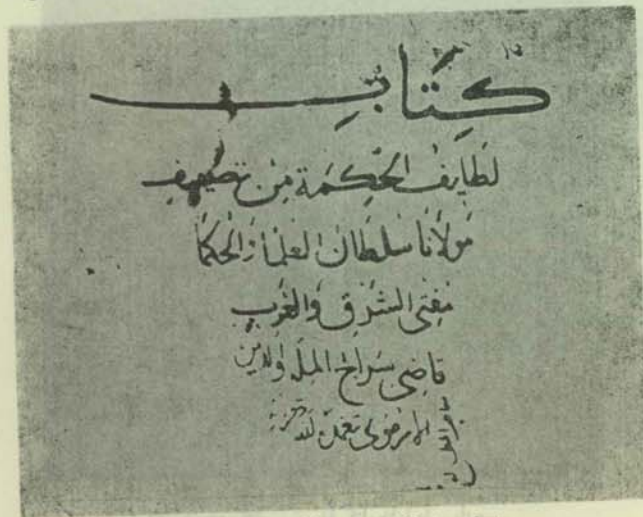 كِتَابُ
لطايف الحكمة من تصنيف
مولانا سلطان العلما و الحكما
مفتى الشرق والغرب
قاضى سراج الملة والدين
الارموى تغمده الله